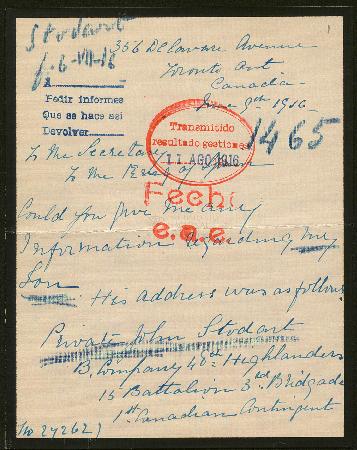 Stodart
6-VII-16
356 Delaware Avenue
Toronto Ont
Canada
June 9th 1916
A
Pedir informes
Que se hace así
Devolver
Transmitido
resultado gestiones
11 AGO 1916
1465
To the Secretary
To the King of Spain
Fech
e.a.e.
Could you give me any
Information regarding my
Son. His address was as follows
Private John Stodart
B. Company 48th Highlanders
15 Battalion 3rd. Bridgade
1st Canadian Contingent
No 27262